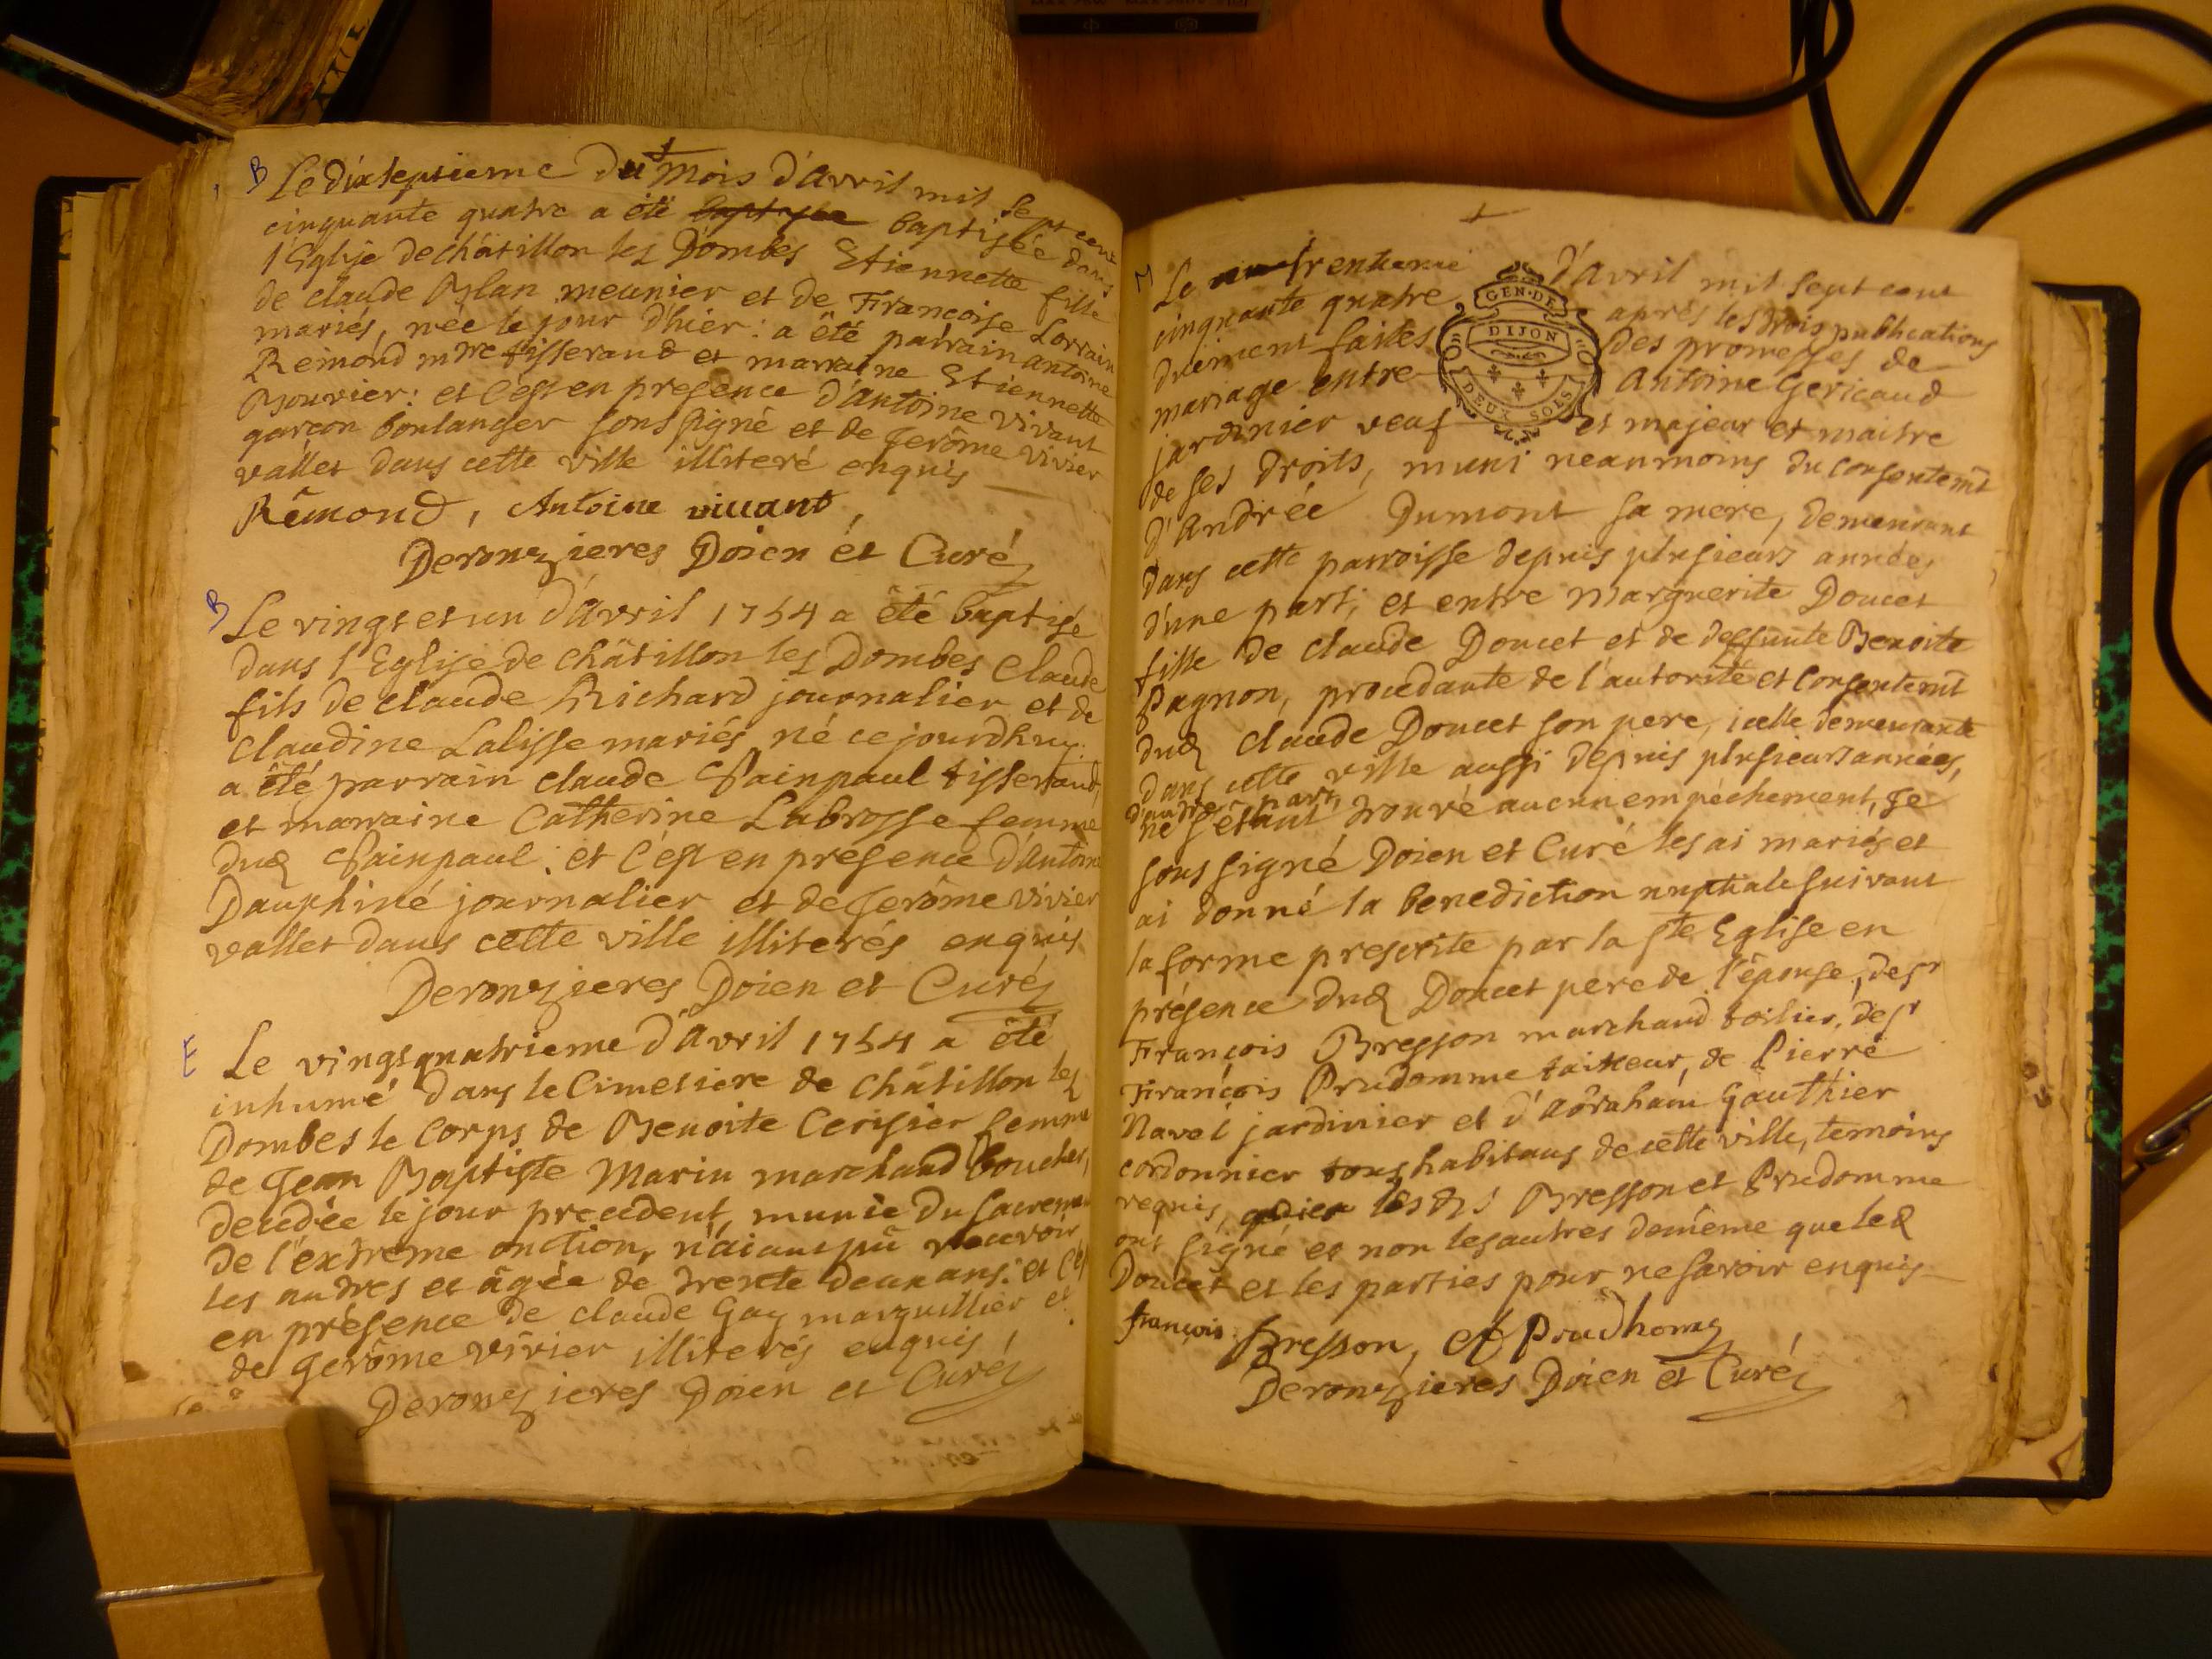 B Le dixseptieme du mois d'avril mil sept cent
cinquante quatre a été baptisée dans
l'Eglise de châtillon les Dombes Etiennette fille
de claude Blan meunier et de Françoise Lorrain
mariés, née le jour d'hier: a été parrain antoine
Remond mtre tisserand et marraine Etiennette
Bouvier: et c'est en presence d'antoine vivant
garcon boulanger soussigné et de Jerôme vivier
vallet dans cette ville illiteré enquis
Rêmond, Antoine vivant
Deronzieres Doien et Curé
B Le vingt et un d'avril 1754 a été baptisé
dans l'Eglise de châtillon les Dombes Claude
fils de claude Richard journalier et de
claudine Lalisse mariés né cejourdhuy.
a été parrain claude Painpaul tisserand,
et marraine Catherine Labrosse femme
dud Painpaul: et c'est en présence d'antoine
Dauphiné journalier et de Jerôme vivier
vallet dans cette ville illiterés enquis
Deronzieres Doien et Curé
E Le vingtquatrieme d'avril 1754 a été
inhumé dans le Cimetiere de châtillon les
Dombes le corps de Benoite Cerisier femme
de Jean Baptiste Marin marchand boucher,
decedée le jour precedent, munie du sacrem
de l'extreme onction, n'aiant pû recevoir
les autres et âgée de trente deux ans: et c'est
en présence de claude Gay marguillier et
de Gerôme vivier illiterés enquis,
Deronzieres Doien et Curé
M Le trentieme d'avril mil sept cent
cinquante quatre après les trois publications
duëment faites des promesses de
mariage entre Antoine Gericaud
jardinier veuf et majeur et maitre
de ses droits, muni neanmoins du consentemt
d'Andrée Dumont sa mere, demeurant
dans cette parroisse depuis plusieurs années
d'une part; et entre Marguerite Doucet
fille de claude Doucet et de deffunte Benoite
Pagnon, procedante de l'autorité et consentemt
dud claude Doucet son pere, icelle demeurante
dans cette ville aussi depuis plusieurs années,
d'autre part,
ne s'étant trouvé aucun empéchement, Je
soussigné Doien et Curé les ai mariés et
ai donné la benediction nuptiale suivant
la forme prescrite par la ste Eglise en
présence dud Doucet pere de l'épouse, de sr
François Bresson marchand toilier, de sr
François Prudomme taitteur, de Pierre
Navel jardinier et d'abraham Gauthier
cordonnier tous habitans de cette ville, temoins
requis, les Bresson et Prudomme
ont signé et non les autres demême que led
Doucet et les parties pour ne savoir enquis
françois Bresson, Prudhome
Deronzieres Doien et Curé
GEN. DE
DIJON
DEUX SOLS